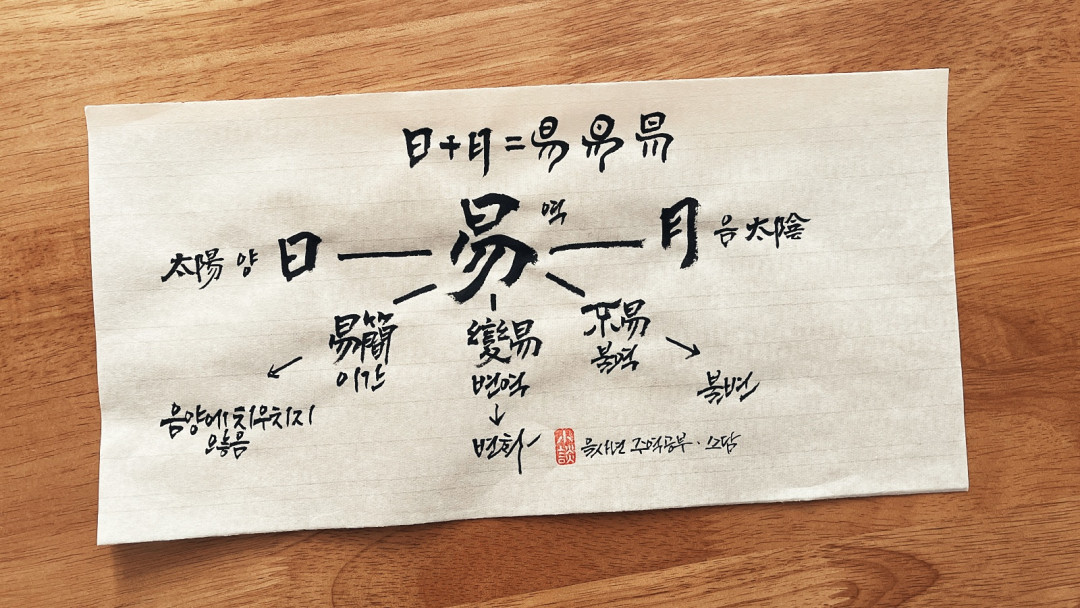 日+月=易 易 易
太陽 양 日 — 易 역 — 月 음 太陰
易簡 變易 不易
이간 변역 불역
음양에 치우치지 않음
↓
변화
불변
小談 을사년 주역공부·소담